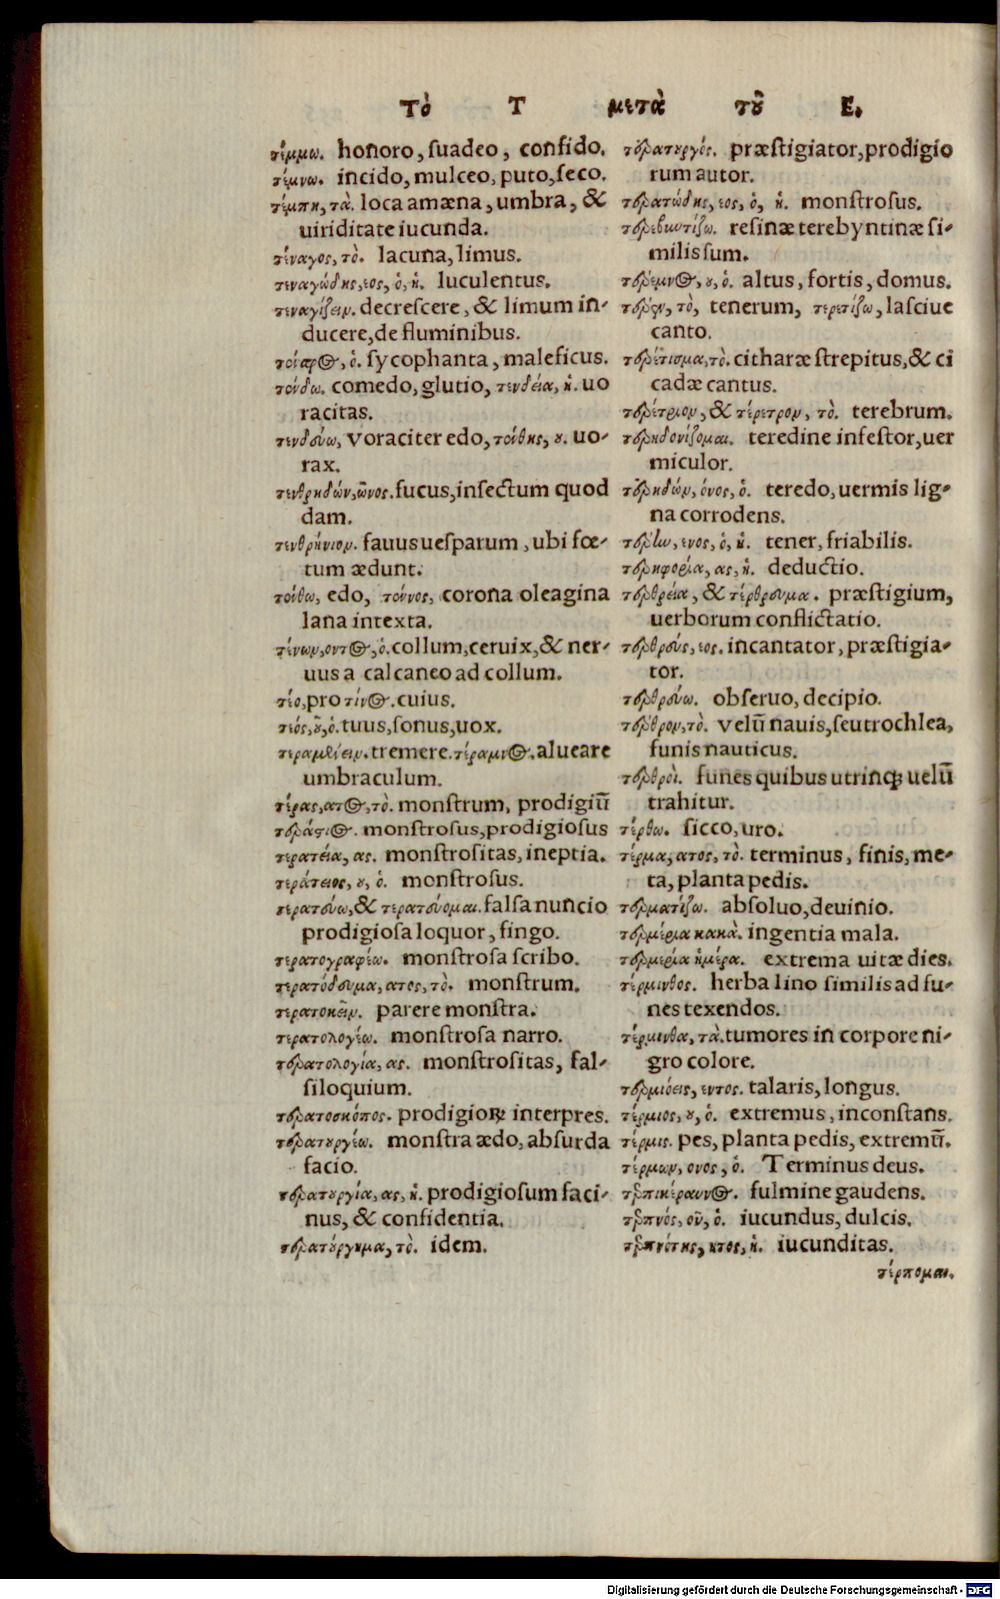 Τὸ Τ μετὰ τοῦ Ε.
τέμμω. honoro, suadeo, confido.
τέμνω. incido, mulceo, puto, seco.
τέμπη, τὰ. loca amæna, umbra, &
uiriditate iucunda.
τέναγος, τὸ. lacuna, limus.
τεναγώδης, εος, ὁ, ἡ. luculentus.
τεναγίζειν. decrescere, & limum in-
ducere, de fluminibus.
τένδρος, ὁ. sycophanta, maleficus.
τένδω. comedo, glutio, τενδεία, ἡ. uo
racitas.
τενδεύω, voraciter edo, τένθης, ου. uo-
rax.
τενθρηδών, ῶνος. fucus, insectum quod
dam.
τενθρήνιον. fauus uesparum, ubi fœ-
tum ædunt.
τένθω, edo, τέννος, corona oleagina
lana intexta.
τένων, οντος, ὁ. collum, ceruix, & ner-
uus a calcaneo ad collum.
τέο, pro τίνος. cuius.
τεός, οῦ, ὁ. tuus, sonus, uox.
tremere. τέραμνος. alueare
umbraculum.
τέρας, ατος, τὸ. monstrum, prodigiū
τεράστιος. monstrosus, prodigiosus
τερατεία, ας. monstrositas, ineptia.
τεράτειος, ου, ὁ. monstrosus.
τερατεύω, & τερατεύομαι. falsa nuncio
prodigiosa loquor, fingo.
τερατογραφέω. monstrosa scribo.
τερατόδευμα, ατος, τὸ. monstrum.
τερατοκεῖν. parere monstra.
τερατολογέω. monstrosa narro.
τερατολογία, ας. monstrositas, fal-
siloquium.
τερατοσκόπος. prodigioꝝ interpres.
τερατουργέω. monstra ædo, absurda
facio.
τερατουργία, ας, ἡ. prodigiosum faci-
nus, & confidentia.
τερατούργημα, τὸ. idem.
τερατουργός. præstigiator, prodigio
rum autor.
τερατώδης, εος, ὁ, ἡ. monstrosus.
τερεβιντίζω. resinæ terebyntinæ si-
milis sum.
τέρεμνος, ου, ὁ. altus, fortis, domus.
τέρεν, τὸ, tenerum, τερετίζω, lasciue
canto.
τερέτισμα, τὸ. citharæ strepitus, & ci
cadæ cantus.
τερέτριον, & τέρετρον, τὸ. terebrum.
τερηδονίζομαι. teredine infestor, uer
miculor.
τερηδών, όνος, ὁ. teredo, uermis lig-
na corrodens.
τέρην, ενος, ὁ, ἡ. tener, friabilis.
τερηφορία, ας, ἡ. deductio.
τερθρεία, & τέρθρευμα. præstigium,
uerborum conflictatio.
τερθρεύς, εος. incantator, præstigia-
tor.
τερθρεύω. obseruo, decipio.
τέρθρον, τὸ. velū nauis, seu trochlea,
funis nauticus.
τερθροὶ. funes quibus utrinqꝫ uelū
trahitur.
τέρθω. sicco, uro.
τέρμα, ατος, τὸ. terminus, finis, me-
ta, planta pedis.
τερματίζω. absoluo, deuinio.
τερμέρια κακὰ. ingentia mala.
τερμερία ἡμέρα. extrema uitæ dies.
τέρμινθος. herba lino similis ad fu-
nes texendos.
τέρμινθα, τὰ. tumores in corpore ni-
gro colore.
τερμιόεις, εντος. talaris, longus.
τέρμιος, ου, ὁ. extremus, inconstans.
τέρμις. pes, planta pedis, extremū.
τέρμων, ονος, ὁ. Terminus deus.
τερπικέραυνος. fulmine gaudens.
τερπνός, οῦ, ὁ. iucundus, dulcis.
τερπνότης, ητος, ἡ. iucunditas.
τέρπομαι.
Digitalisierung gefördert durch die Deutsche Forschungsgemeinschaft - DFG